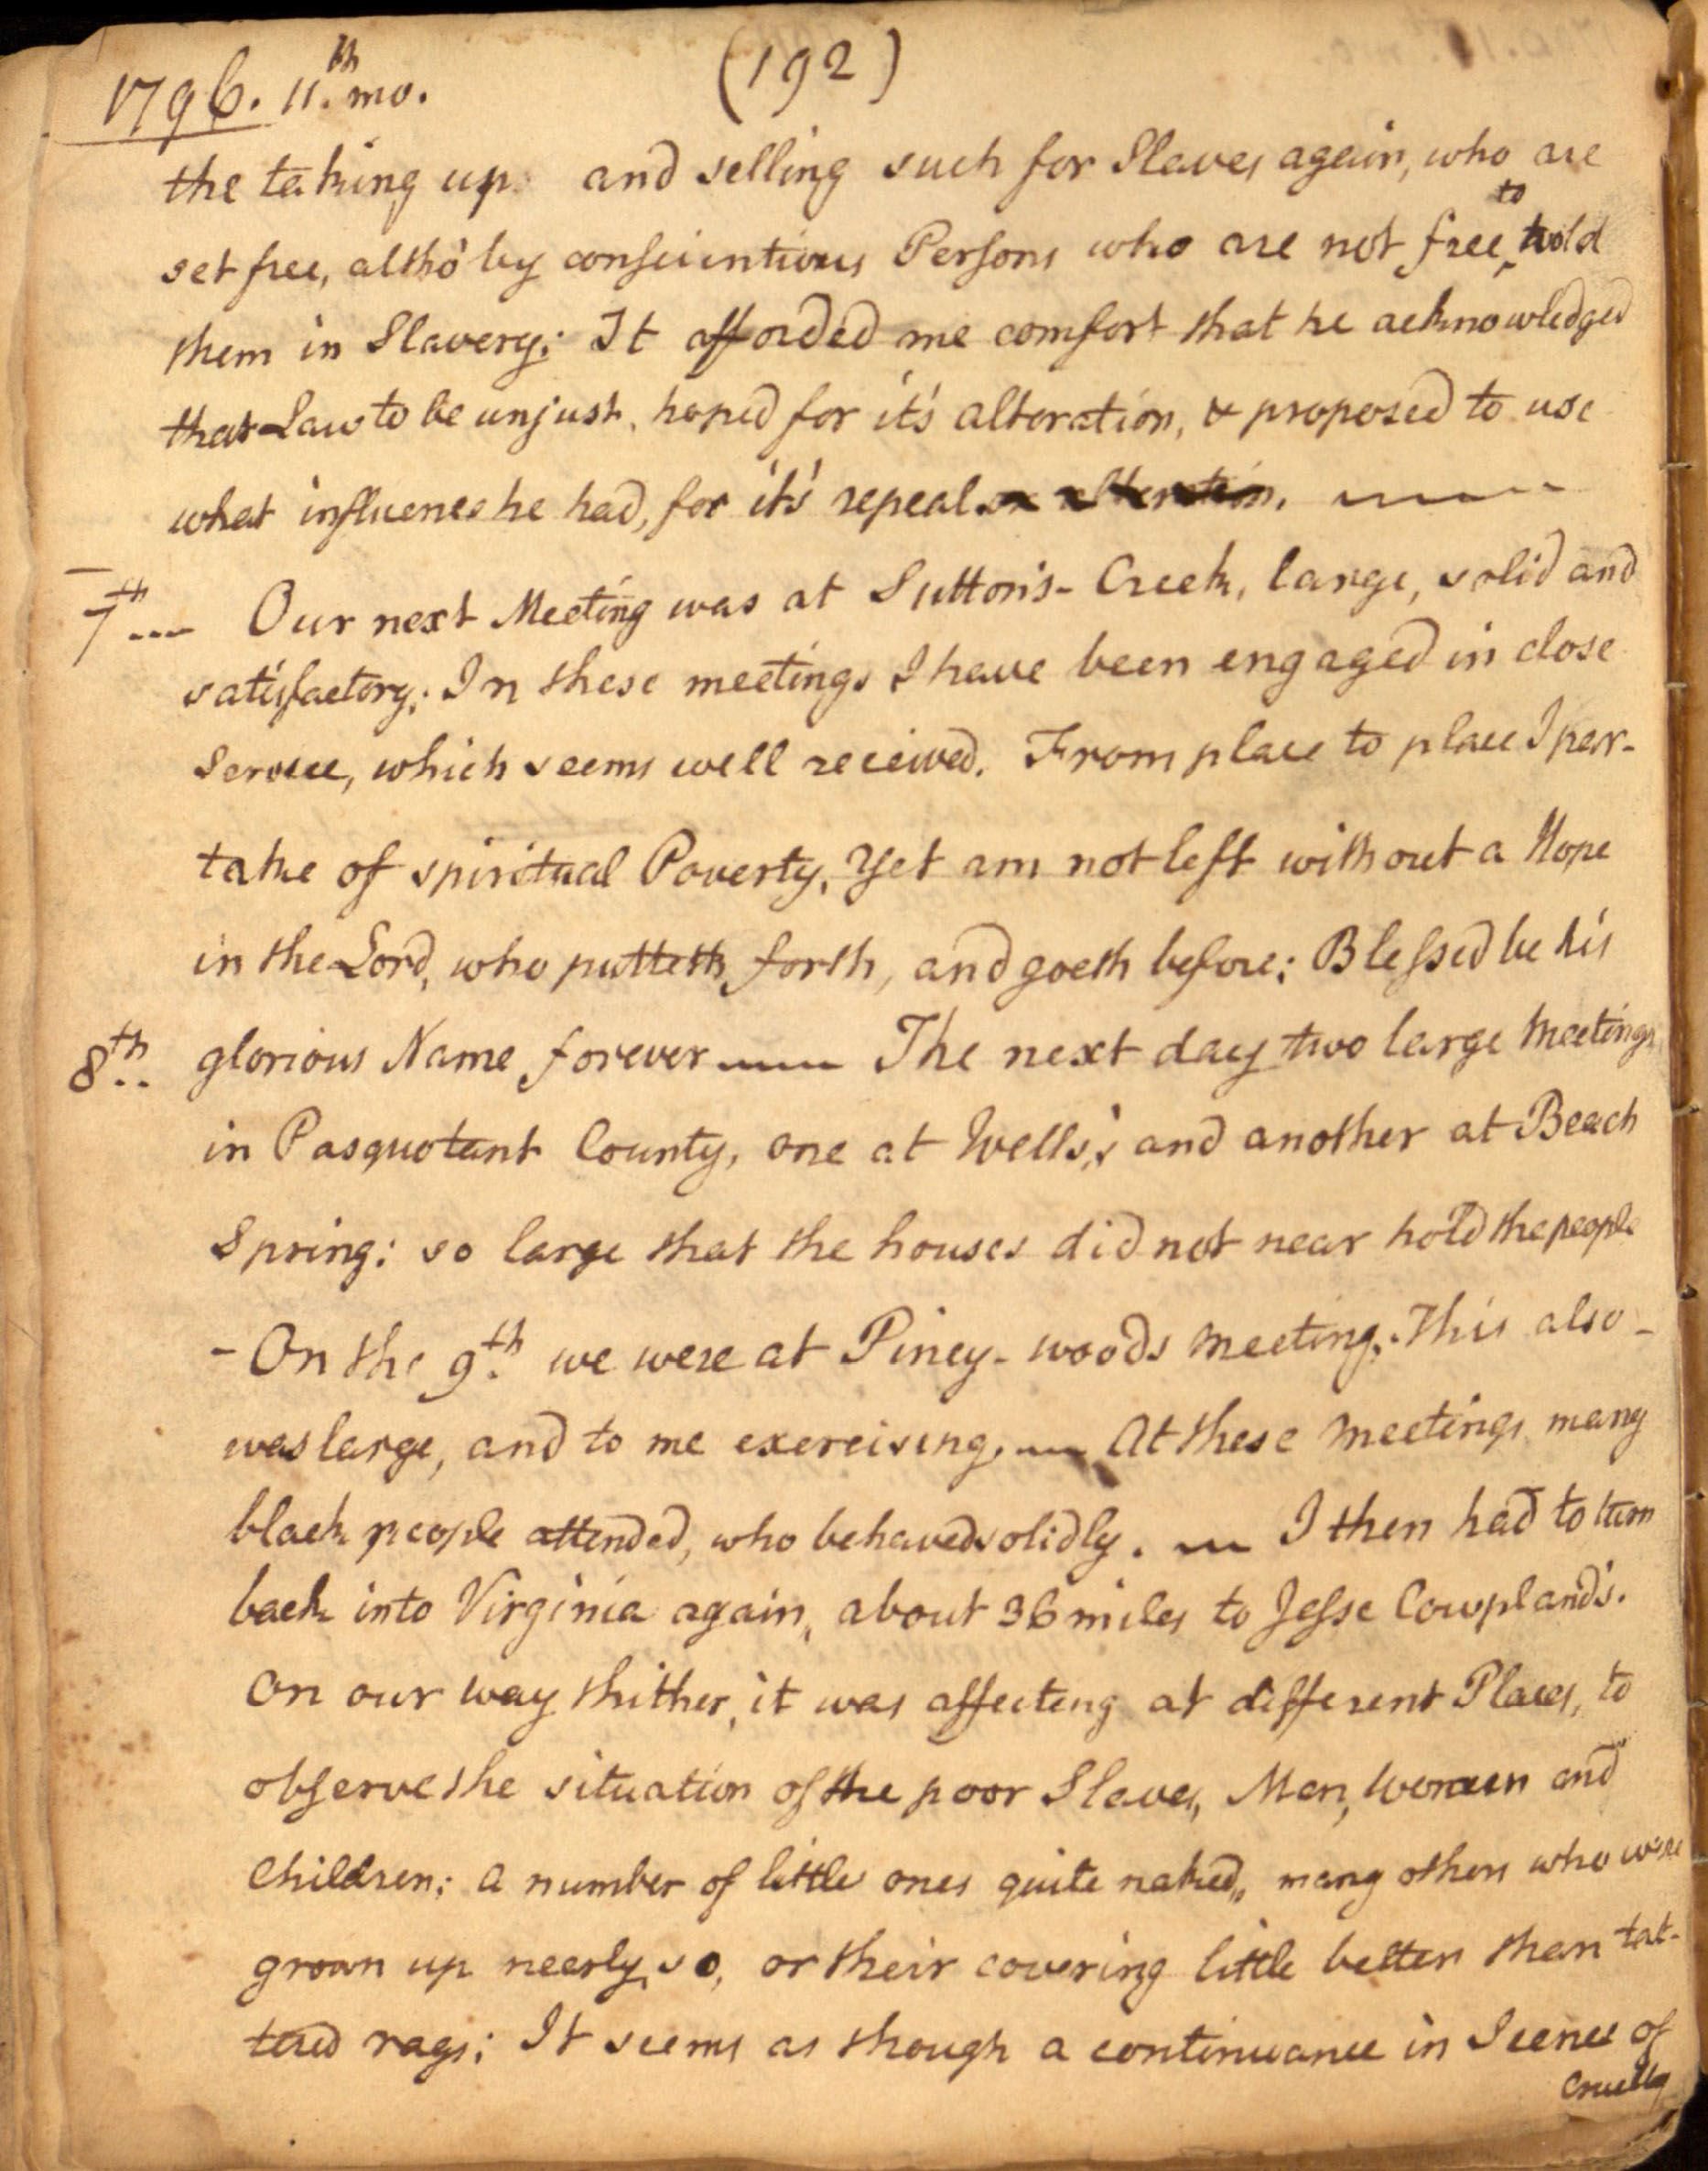 1796. 11.th mo.
(192)
the taking up and selling such for Slaves again, who are
set free, altho' by conscientious Persons who are not free to hold
them in Slavery; It afforded me comfort that he acknowledged
that Law to be unjust, hoped for it's alteration, & proposed to use
what influence he had, for it's repeal or alteration.
7th Our next Meeting was at Suttons-Creek, large, solid and
satisfactory; In these meetings I have been engaged in close
Service, which seems well received. From place to place I par-
take of spiritual Poverty, yet am not left without a Hope
in the Lord, who putteth forth, and goeth before; Blessed be his
8th glorious Name forever —— The next day two large Meetings
in Pasquotank County, one at Wells's and another at Beach
Spring; so large that the houses did not near hold the people
- On the 9.th we were at Piney-woods Meeting. This also
was large, and to me exercising. — At these Meetings many
black people attended, who behaved solidly. — I then had to turn
back into Virginia again, about 36 miles to Jesse Cowpland's.
On our way thither, it was affecting at different Places, to
observe the situation of the poor Slaves, Men, Women and
Children; a number of little ones quite naked, many others who were
grown up nearly so, or their covering little better than tat-
tered rags; It seems as though a continuance in Scenes of
Cruelty